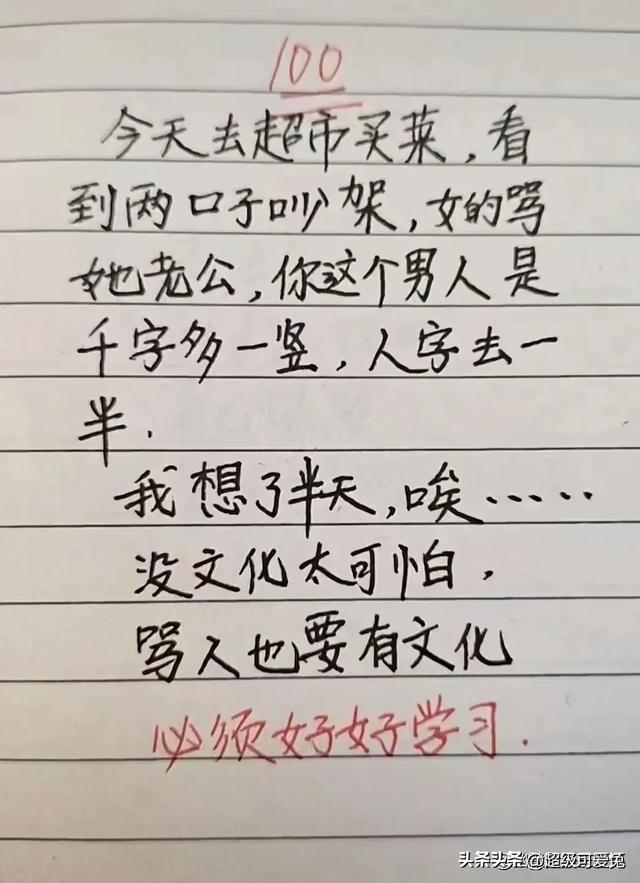 100
今天去超市买菜，看
到两口子吵架，女的骂
她老公，你这个男人是
千字多一竖，人字去一
半.
我想了半天，唉……
没文化太可怕，
骂人也要有文化
必须好好学习.
头条头条 @超级可爱兔